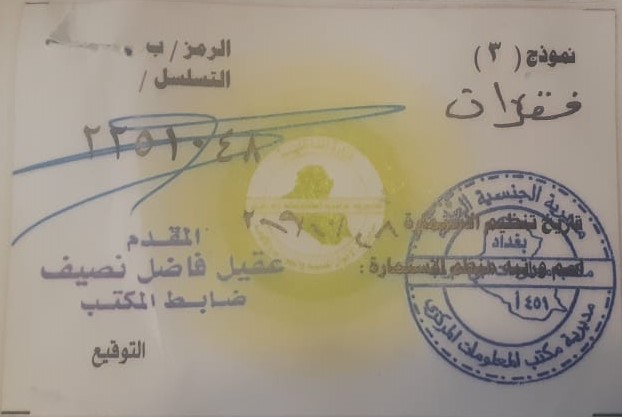 نموذج ( ٣ )
الرمز / ب
التسلسل /
٢٢٥١٠٤٨
تاريخ تنظيم الاستمارة
اسم ورتبة منظم الاستمارة :
المقدم
عقيل فاضل نصيف
ضابط المكتب
التوقيع
مديرية الجنسية
بغداد
٤٥١ أ
مديرية مكتب المعلومات المركزي